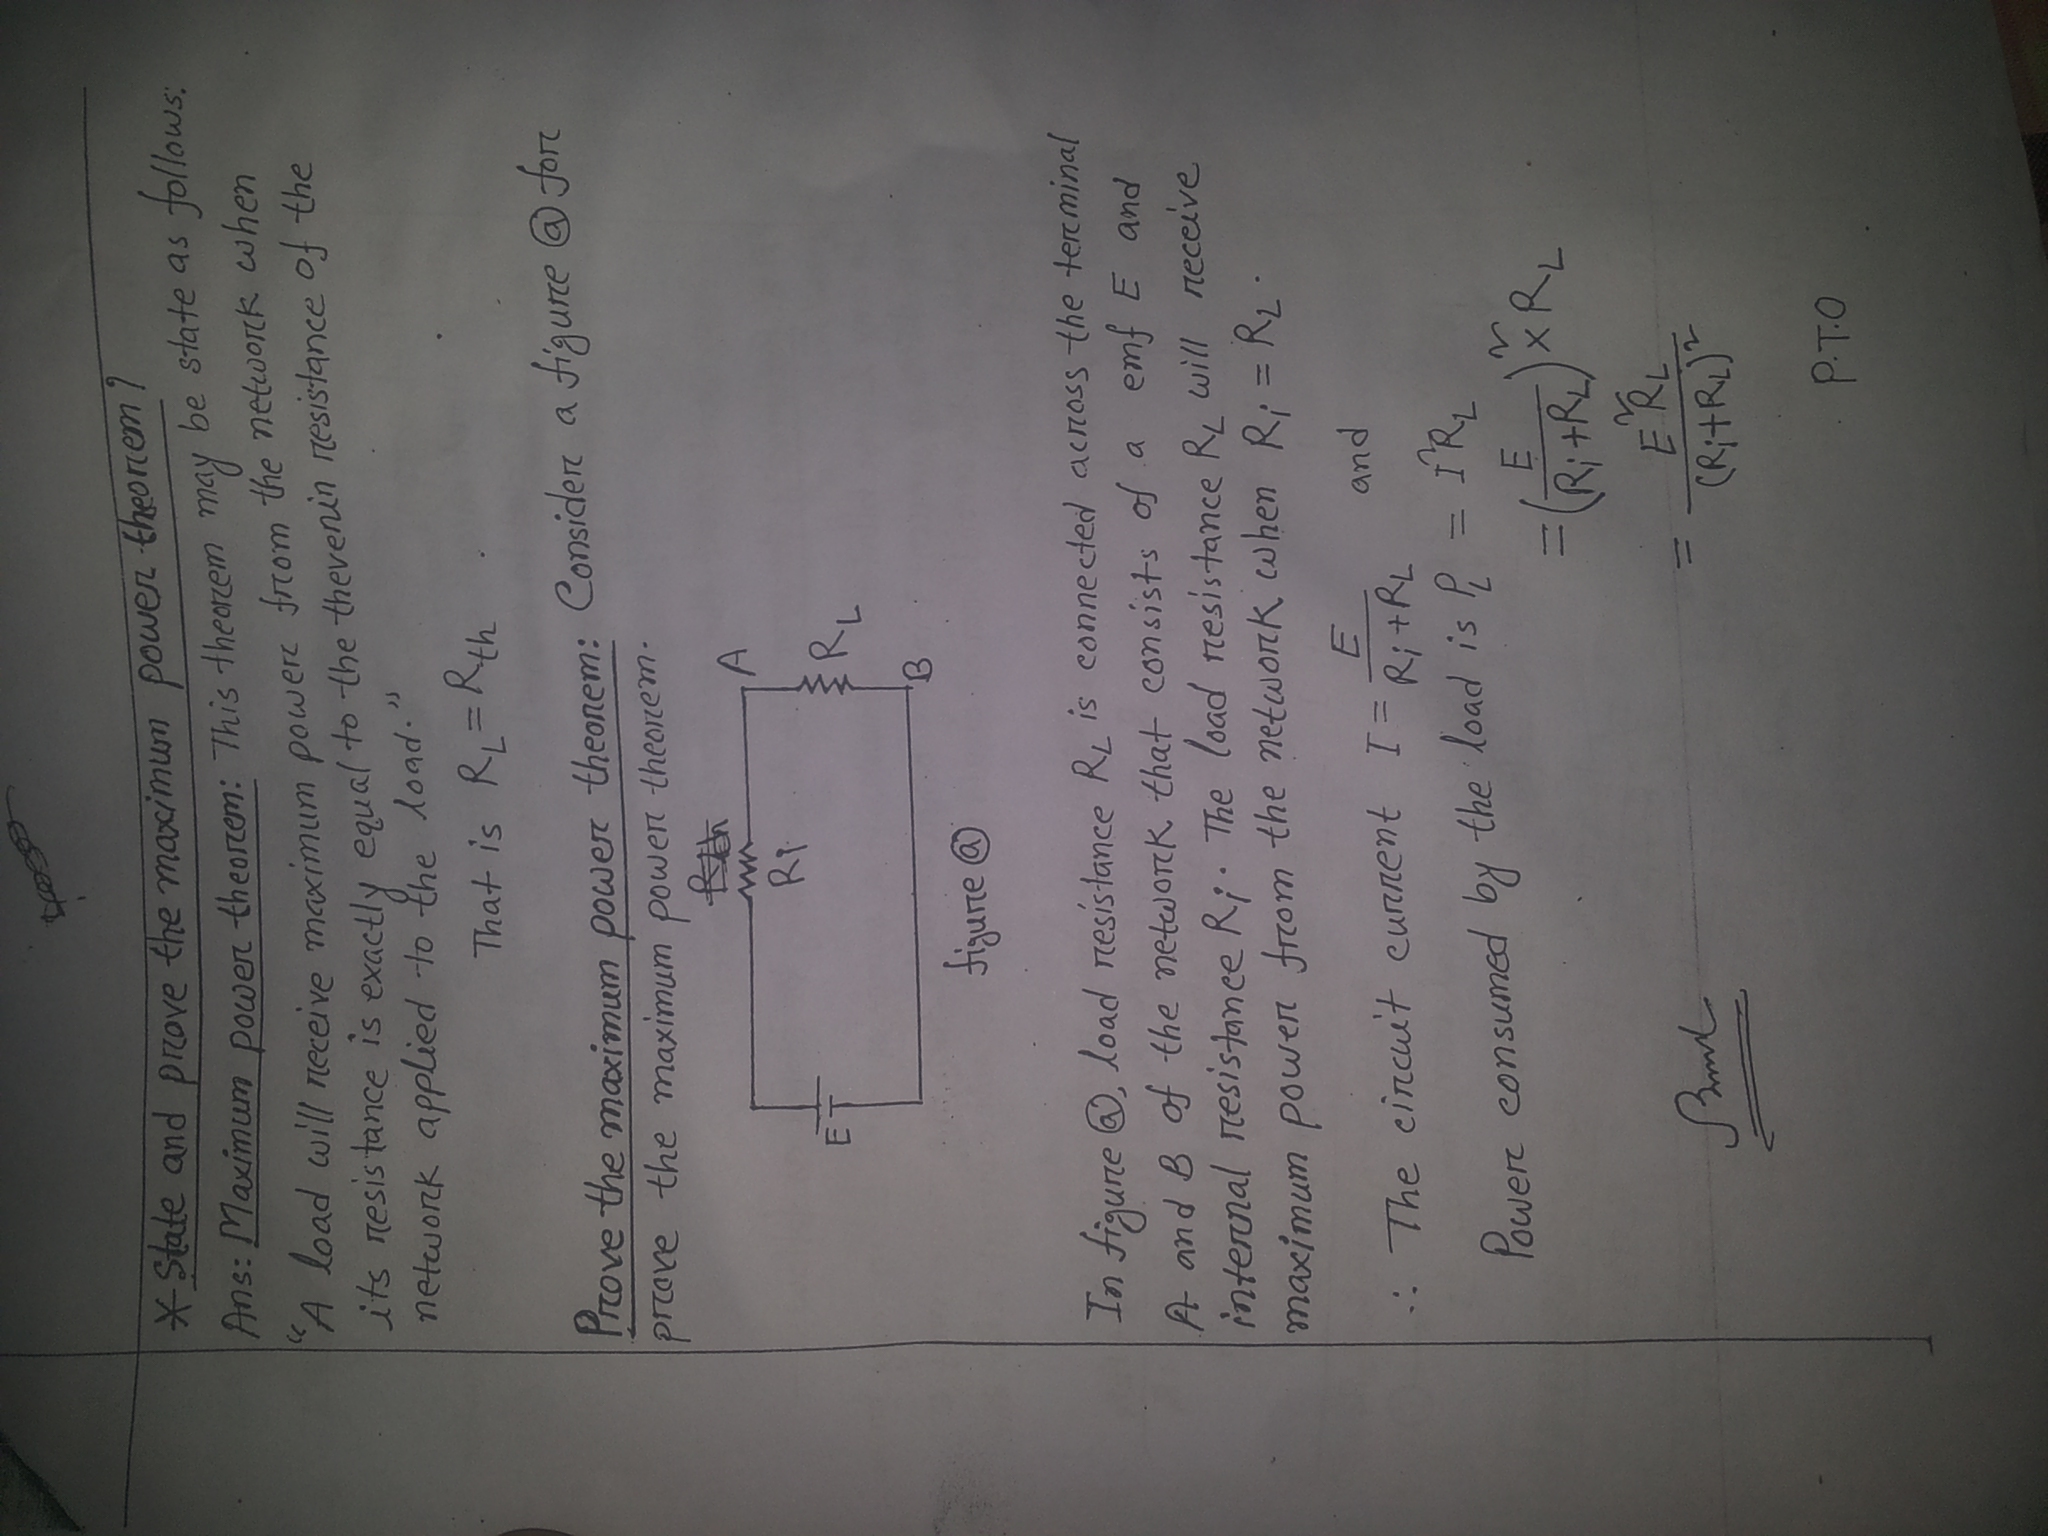 * State and prove the maximum power theorem?
Ans: Maximum power theorem: This theorem may be state as follows:
"A load will receive maximum power from the network when
its resistance is exactly equal to the thevenin resistance of the
network applied to the load."
That is R_L = R_th
Prove the maximum power theorem: Consider a figure ⓐ for
prove the maximum power theorem.
A
Ri
E
R_L
B
figure ⓐ
In figure ⓐ, load resistance R_L is connected across the terminal
A and B of the network that consists of a emf E and
internal resistance R_i. The load resistance R_L will receive
maximum power from the network when R_i = R_L.
∴ The circuit current I = E/(R_i+R_L) and
Power consumed by the load is P_L = I²R_L
= (E/(R_i+R_L))² × R_L
= E²R_L/(R_i+R_L)²
P.T.O